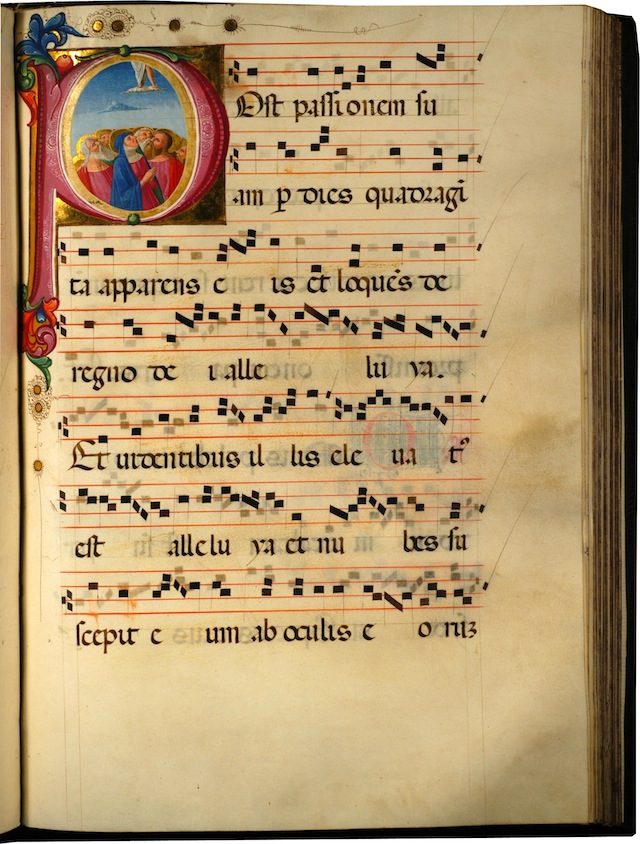 Post passionem su
am p dies quadragi
ta apparens e is et loques de
regno de i alle lu ya.
Et uidentibus il lis ele ua t
est allelu ya et nu bes su
scepit e um ab oculis e oruz